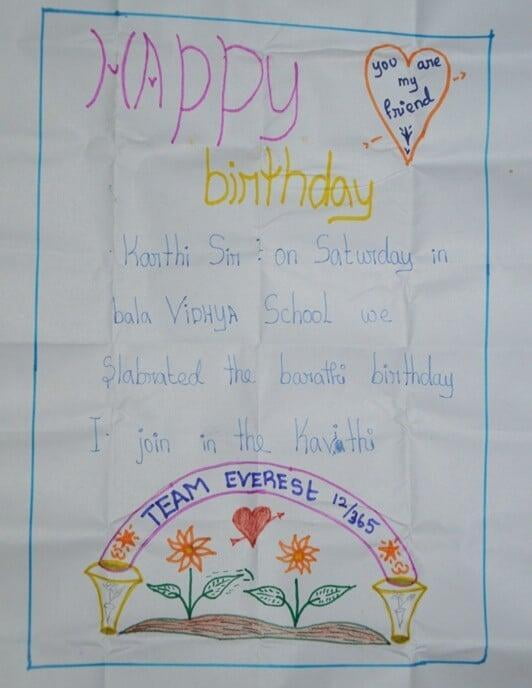 HAPPY
you are
my
friend
birthday
Karthi Sir : on Saturday in
bala ViDHyA School we
Slabrated the barathi birthday
I join in the Kavithi
TEAM EVEREST 12/365